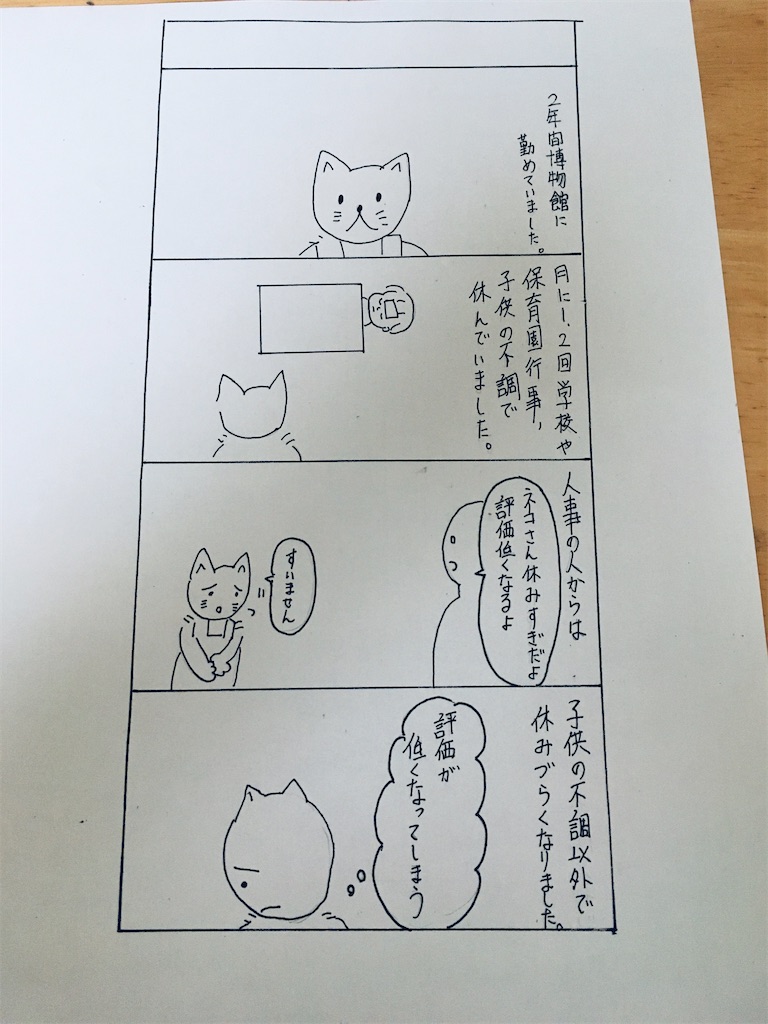 2年間博物館に
勤めていました。
月に1、2回学校や
保育園行事、
子供の不調で
休んでいました。
人事の人からは
ネコさん休みすぎだよ
評価低くなるよ
すいません
子供の不調以外で
休みづらくなりました。
評価が
低くなってしまう